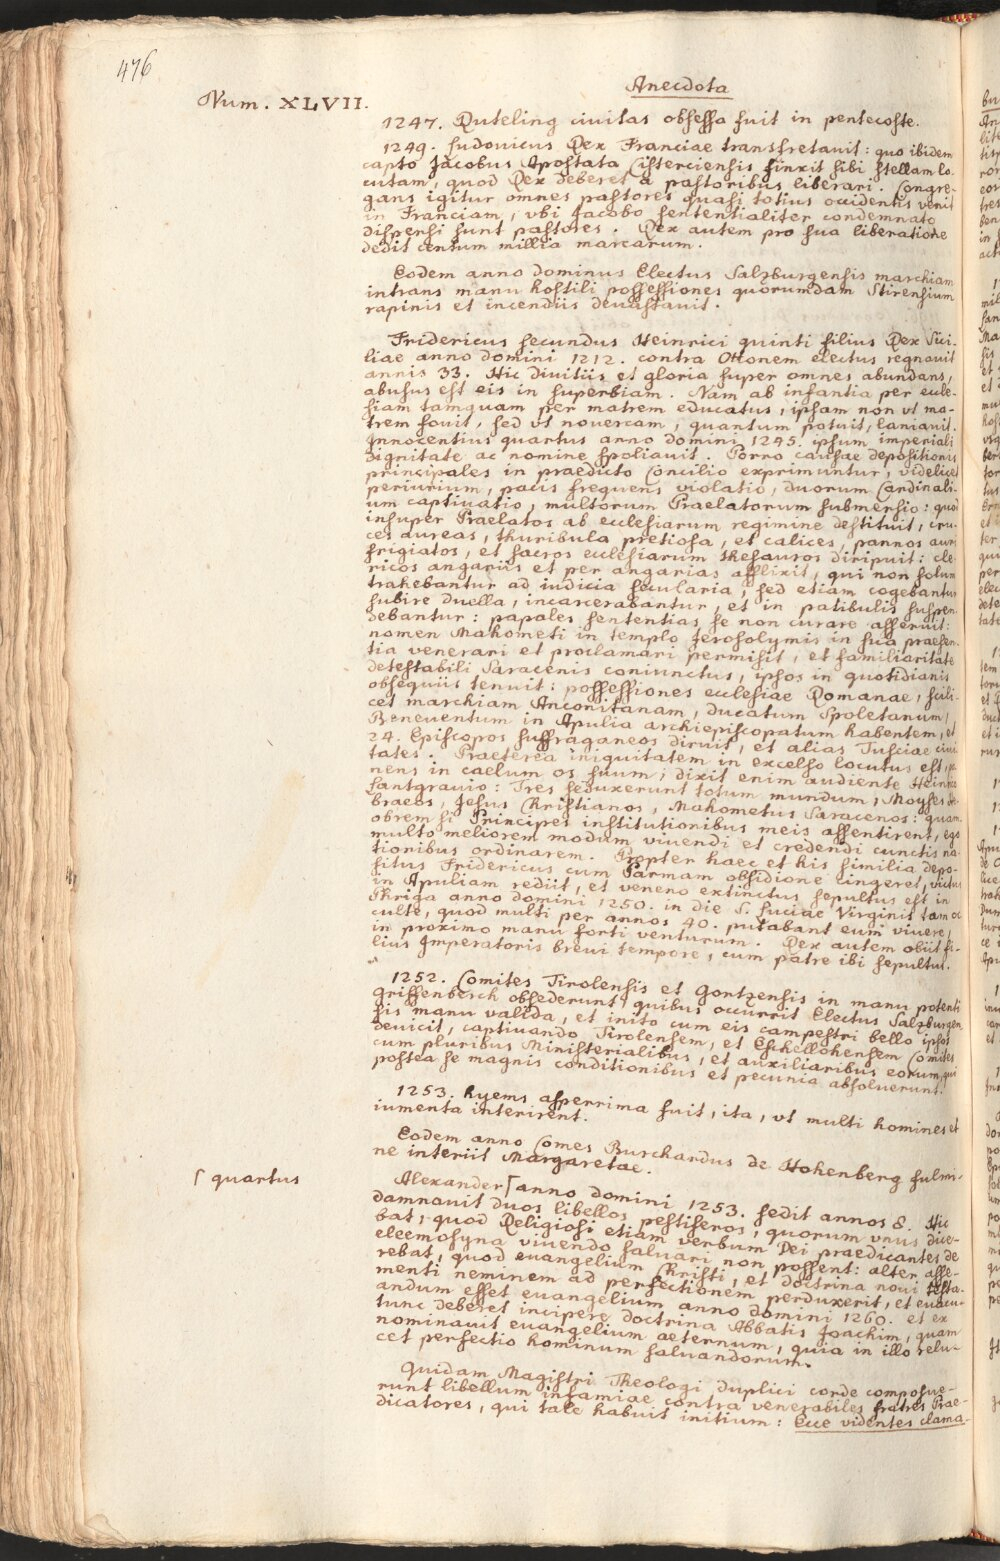 476
Anecdota
Num. XLVII.
1247. Ruteling civitas obsessa fuit in pentecoste.
1249. Ludovicus Rex Franciae transfretavit: quo ibidem
capto Jacobus Apostata Cisterciensis finxit sibi stellam lo-
cutam, quod Rex deberet a pastoribus liberari. Congre-
gans igitur omnes pastores quasi totius occidentis venit
in Franciam, vbi Jacobo sententialiter condemnato
dispersi sunt pastores. Rex autem pro sua liberatione
dedit centum millia marcarum.
Eodem anno dominus Electus Salzburgensis marchiam
intrans manu hostili possessiones quorumdam Stirensium
rapinis et incendiis devastavit.
Fridericus secundus Heinrici quinti filius Rex Sici-
liae anno domini 1212. contra Ottonem electus regnavit
annis 33. Hic divitiis et gloria super omnes abundans,
abusus est eis in superbiam. Nam ab infantia per eccle-
siam tamquam per matrem educatus, ipsam non vt ma-
trem fovit, sed vt novercam, quantum potuit, laniavit.
Innocentius quartus anno domini 1245. ipsum imperiali
dignitate ac nomine spoliavit. Porro causae depositionis
principales in praedicto Concilio exprimuntur, videlicet
periurium, pacis frequens violatio, duorum Cardinali-
um captivatio, multorum Praelatorum submersio: quod
insuper Praelatos ab ecclesiarum regimine destituit, cru-
ces aureas, thuribula pretiosa, et calices, pannos auri
frigiatos, et sacros ecclesiarum thesauros diripuit: cle-
ricos angariis et per angarias afflixit, qui non solum
trahebantur ad iudicia secularia, sed etiam cogebantur
subire duella, incarcerabantur, et in patibulis suspen-
debantur: papales sententias se non curare asseruit:
nomen Mahometi in templo Jerosolymis in sua praesen-
tia venerari et proclamari permisit, et familiaritate
detestabili Saracenis coniunctus, ipsos in quotidianis
obsequiis tenuit: possessiones ecclesiae Romanae, scili-
cet marchiam Anconitanam, ducatum Spoletanum,
Beneventum in Apulia archiepiscopatum habentem, et
24. Episcopos suffraganeos diruit, et alias Tusciae civi-
tates. Praeterea iniquitatem in excelso locutus est, po-
nens in caelum os suum, dixit enim audiente Heinrico
Lantgravio: Tres seduxerunt totum mundum, Moyses He-
braeos, Jesus Christianos, Mahometus Saracenos: quam
obrem si Principes institutionibus meis assentirent, ego
multo meliorem modum vivendi et credendi cunctis na-
tionibus ordinarem. Propter haec et his similia depo-
situs Fridericus cum Parmam obsidione cingeret, victus
in Apuliam rediit, et veneno extinctus sepultus est in
Phrigia anno domini 1250. in die S. Luciae Virginis tam oc
culte, quod multi per annos 40. putabant eum vivere,
in proximo manu forti venturum. Rex autem obiit fi-
lius Imperatoris brevi tempore, cum patre ibi sepultus.
1252. Comites Tirolensis et Gortzensis in manu potenti
Griffenberch obsederunt, quibus occurrit Electus Salzburgen
sis manu valida, et inito cum eis campestri bello ipsos
devicit, captivando Tirolensem, et Eschellohensem Comites
cum pluribus Ministerialibus, et auxiliaribus eorum, qui
postea se magnis conditionibus et pecunia absolverunt.
1253. hyems asperrima fuit, ita, vt multi homines et
iumenta interirent.
Eodem anno Comes Burchardus de Hohenberg fulmi-
ne interiit Margaretae.
⌈ quartus
Alexander ⌈ anno domini 1253. sedit annos 8. Hic
damnavit duos libellos pestiferos, quorum vnus dice-
bat, quod Religiosi etiam verbum Dei praedicantes de
eleemosyna vivendo salvari non possent: alter asse-
rebat, quod evangelium Christi, et doctrina novi testa-
menti neminem ad perfectionem perduxerit, et evacu-
andum esset evangelium anno domini 1260. et ex
tunc deberet incipere doctrina Abbatis Joachim, quam
nominavit evangelium aeternum, quia in illo relu-
cet perfectio hominum salvandorum.
Quidam Magistri Theologi duplici corde composue-
runt libellum infamiae contra venerabiles fratres Prae-
dicatores, qui tale habuit initium: Ecce videntes clama-